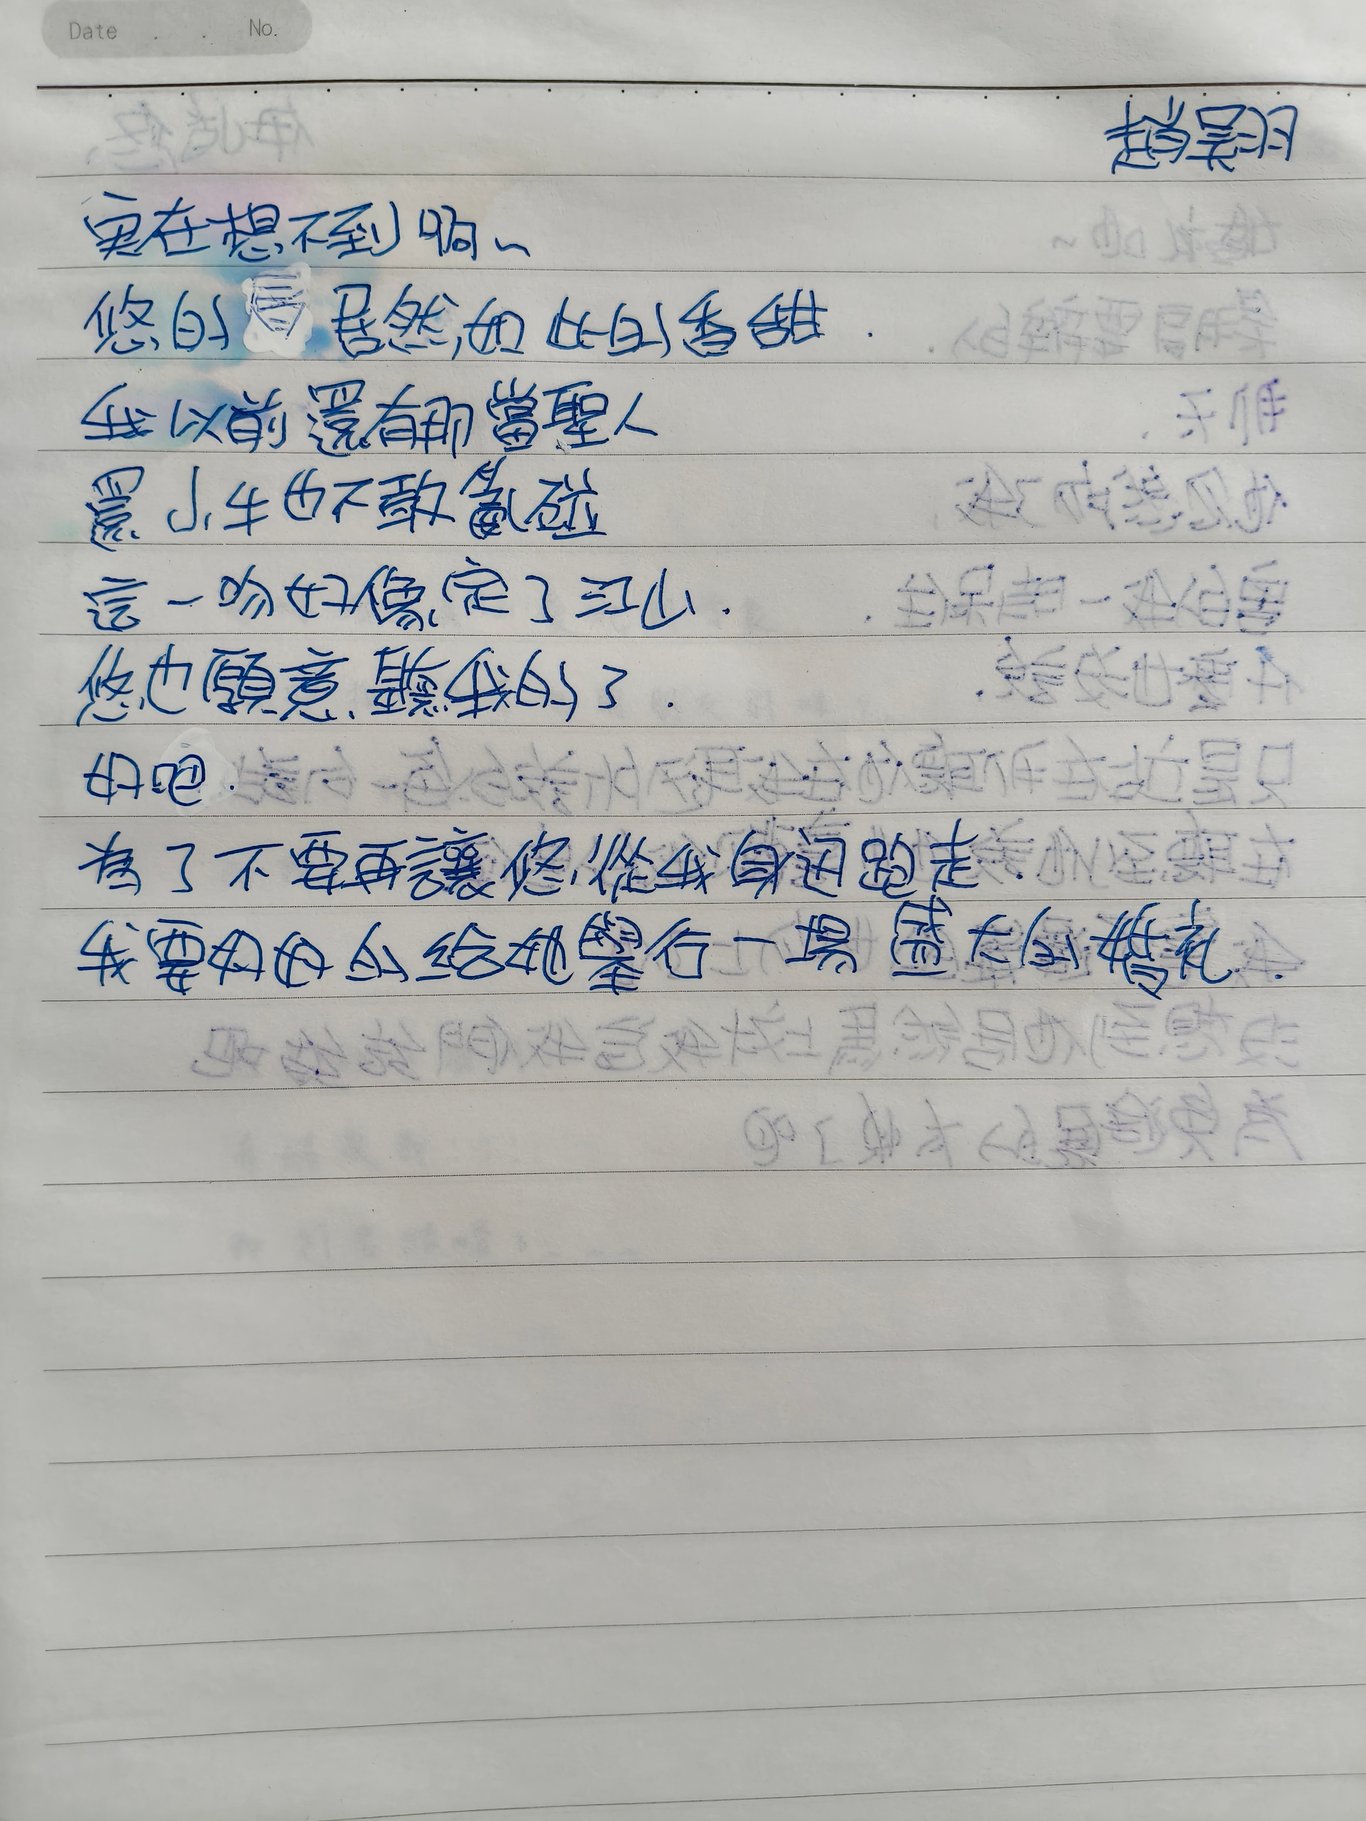 Date . . No.
趙昊羽
実在想不到啊~
悠的 居然如此的香甜.
我以前還有那當聖人
還小年也不敢亂碰
這一吻好像定了江山.
悠也願意聽我的了.
好吧.
為了不要再讓悠從我身边跑走.
我要好好的給她舉行一場盛大的婚礼.